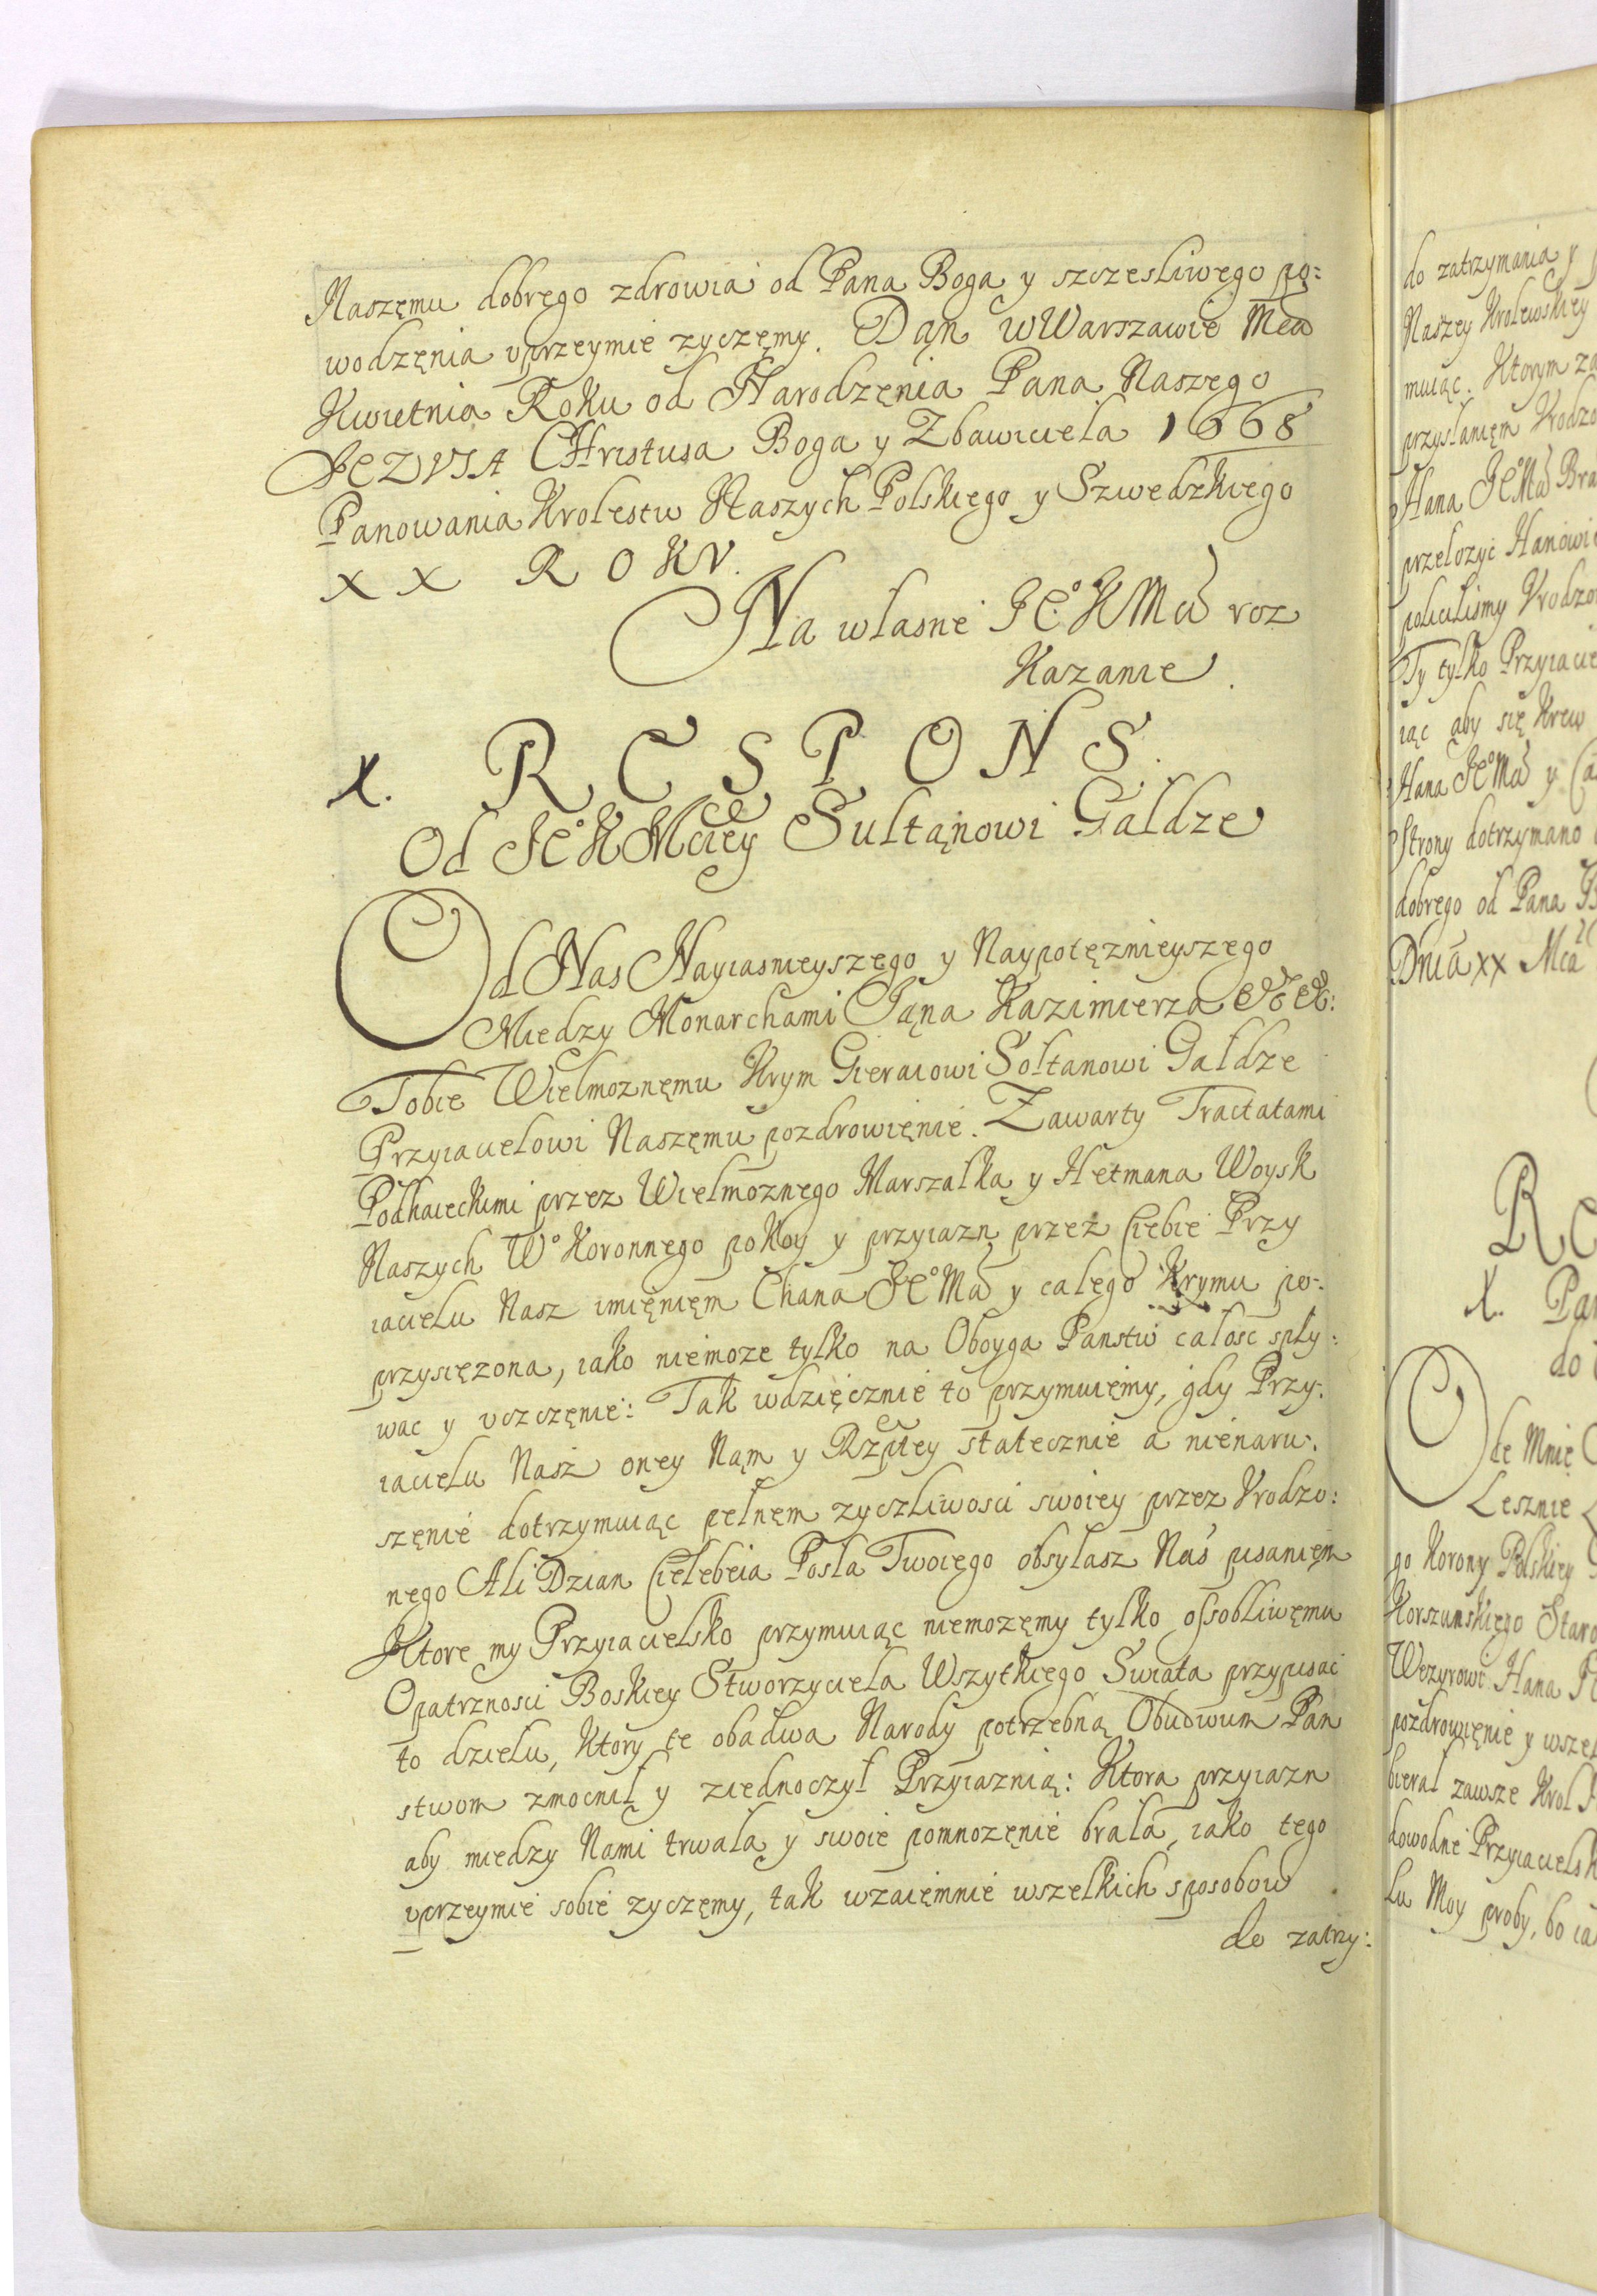 Naszęmu dobrego zdrowia od Pana Boga y szczesliwego po:
wodzęnia vprzeymie zyczęmy. Dąn wWarszawie Mca
Kwietnia Roku od Narodzęnia Pana Naszego
JEZVSA CHristusa Boga y Zbawiciela 1668
Panowania Krolestw Naszych Polskiego y Szwedzkiego
XX ROKV.
Na wlasne JE°KMci roz
Kazanie.
X. RESPONS.
Od JE°KMciey Sultąnowi Galdze
Od Nas Nayiasnieyszego y Naypotęznieyszego
Miedzy Monarchami Jąna Kazimierza
Tobie Wielmoznęmu Krym Gieraiowi Soltanowi Galdze
Przyiacielowi Naszęmu pozdrowięnie. Zawarty Tractatami
Podhaieckimi przez Wielmoznego Marszalka y Hetmana Woysk
Naszych W° Koronnego pokoy y przyiazn przez Ciebie Przy
iacielu Nasz imięnięm Chana JE°Mci y calego Krymu po:
przysięzona, iako niemoze tylko na Oboyga Panstw calosc sply:
wac y vszczęnie: Tak wdzięcznie to przymuięmy, gdy Przy:
iacielu Nasz oney Nąm y Rzptey statecznie a nienaru:
szęnie dotrzymuiąc pelnęm zyczliwosci swoiey przez Vrodzo:
nego Ali Dzian Cielebeia Posla Twoiego obsylasz Nas pisanięm
Ktore my Przyiacielsko przymuiąc niemozęmy tylko ossobliwęmu
Opatrznosci Boskiey Stworzyciela Wszytkiego Swiata przypisac
to dzielu, Ktory te obadwa Narody potrzebną Obudwum Pan
stwom zmocnil y ziednoczyl Przyiaznią: Ktora przyiazn
aby miedzy Nami trwala y swoie pomnozęnie brala, iako tego
vprzeymie sobie zyczęmy, tak wzaięmnie wszelkich sposobow
do zatrzy:
do zatrzymania y
Naszey Krolewskiey
muiąc. Ktorym za
przyslanięm Vrodzo
Hana JE°Mci Bra
przelozyc Hanowi
policilismy Vrodzo
Ty tylko Przyiacie
iąc aby się Krew
Hana JE°Mci y Ca
Strony dotrzymano
dobrego od Pana B
Dnia XX Mca
RE
X. Pa
do
Ode Mnię
Lesznie
go Korony Polskiey
Korszunskiego Staro
Wezyrowi Hana J
pozdrowięnie y wszel
bieral zawsze Krol J
dowodne Przyiacielsk
lu Moy proby, bo ia